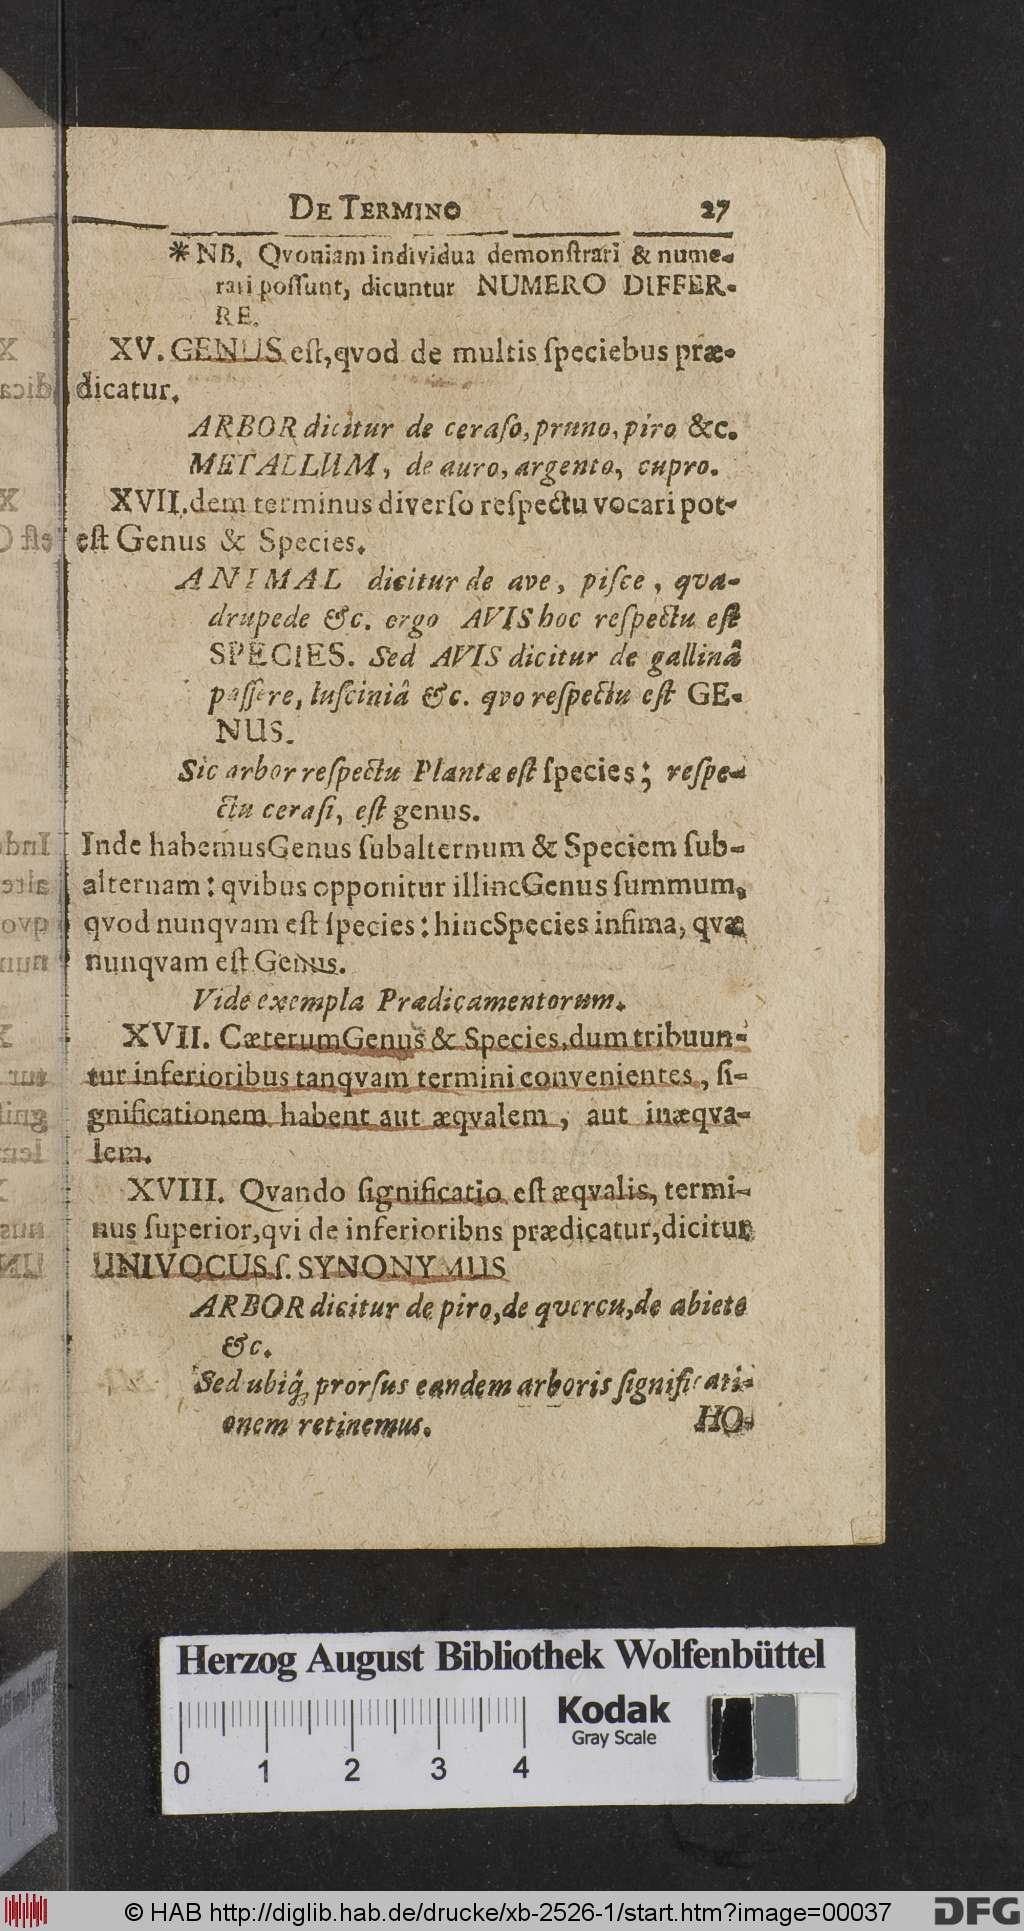 DE TERMINO 27
*NB. Qvoniam individua demonſtrari & nume-
rari poſſunt, dicuntur NUMERO DIFFER-
RE.
XV. GENUS eſt, qvod de multis ſpeciebus præ-
dicatur.
ARBOR dicitur de ceraſo, pruno, piro &c.
METALLUM, de auro, argento, cupro.
XVII. dem terminus diverſo reſpectu vocari pot-
eſt Genus & Species.
ANIMAL dicitur de ave, piſce, qva-
drupede &c. ergo AVIS hoc reſpectu eſt
SPECIES. Sed AVIS dicitur de gallinâ
paſſere, luſciniâ &c. qvo reſpectu eſt GE-
NUS.
Sic arbor reſpectu Plantæ eſt ſpecies; reſpe-
ctu ceraſi, eſt genus.
Inde habemus Genus ſubalternum & Speciem ſub-
alternam: qvibus opponitur illinc Genus ſummum,
qvod nunqvam eſt ſpecies: hinc Species infima, qvæ
nunqvam eſt Genus.
Vide exempla Prædicamentorum.
XVII. Cæterum Genus & Species, dum tribuun-
tur inferioribus tanqvam termini convenientes, ſi-
gnificationem habent aut æqvalem, aut inæqva-
lem.
XVIII. Qvando ſignificatio eſt æqvalis, termi-
nus ſuperior, qvi de inferioribns prædicatur, dicitur
UNIVOCUS ſ. SYNONYMUS
ARBOR dicitur de piro, de qvercu, de abiete
&c.
Sed ubiq́; prorſus eandem arboris ſignificati-
onem retinemus.
HO-
Herzog August Bibliothek Wolfenbüttel
Kodak
Gray Scale
0 1 2 3 4
© HAB http://diglib.hab.de/drucke/xb-2526-1/start.htm?image=00037
DFG